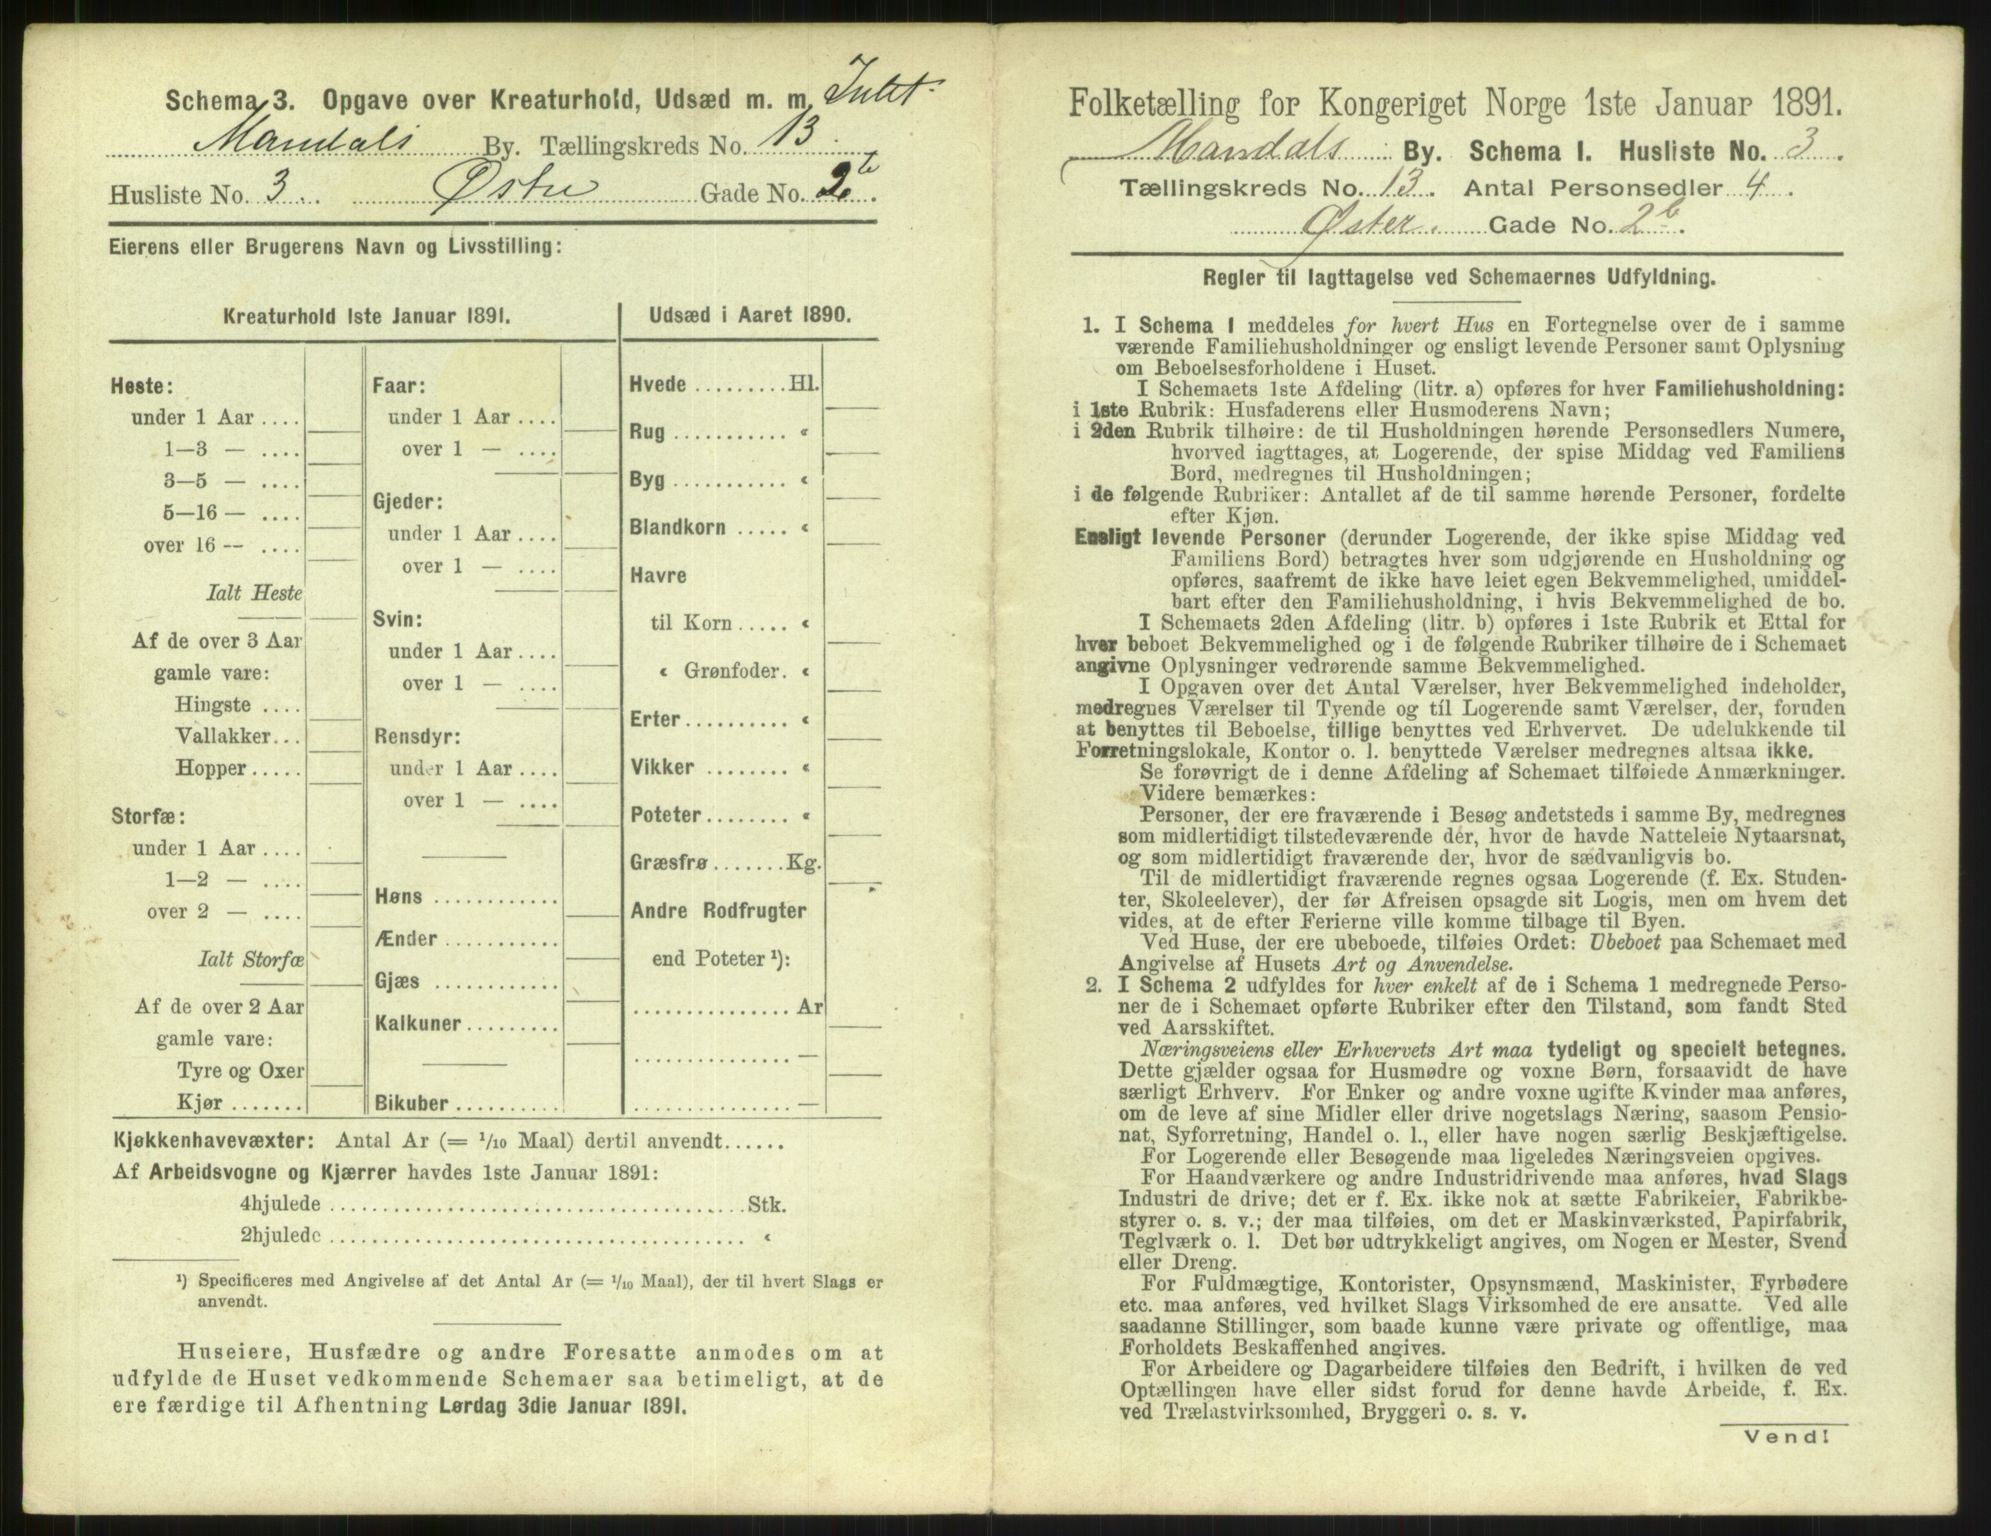 Schema 3. Opgave over Kreaturhold, Udsæd m. m. Intet
Mandals By. Tællingskreds No. 13
Husliste No. 3. Østre Gade No. 2b.
Eierens eller Brugerens Navn og Livsstilling:
Kreaturhold 1ste Januar 1891.
Heste:
under 1 Aar ....
1—3 — ....
3—5 — ....
5—16 — ....
over 16 — ....
Ialt Heste
Af de over 3 Aar
gamle vare:
Hingste ....
Vallakker...
Hopper.....
Storfæ:
under 1 Aar ....
1—2 — ....
over 2 — ....
Ialt Storfæ
Af de over 2 Aar
gamle vare:
Tyre og Oxer
Kjør.......
Faar:
under 1 Aar ....
over 1 — ....
Gjeder:
under 1 Aar ....
over 1 — ....
Svin:
under 1 Aar ....
over 1 — ....
Rensdyr:
under 1 Aar ....
over 1 — ....
Høns ............
Ænder ...........
Gjæs ............
Kalkuner.........
Bikuber..........
Udsæd i Aaret 1890.
Hvede .........Hl.
Rug ........... «
Byg ........... «
Blandkorn ..... «
Havre
til Korn..... «
« Grønfoder. «
Erter.......... «
Vikker ........ «
Poteter........ «
Græsfrø .......Kg.
Andre Rodfrugter
end Poteter ¹):
............... Ar
............... —
............... —
Kjøkkenhavevæxter: Antal Ar (= 1/10 Maal) dertil anvendt......
Af Arbeidsvogne og Kjærrer havdes 1ste Januar 1891:
4hjulede ......................................Stk.
2hjulede ...................................... «
¹) Specificeres med Angivelse af det Antal Ar (= 1/10 Maal), der til hvert Slags er
anvendt.
Huseiere, Husfædre og andre Foresatte anmodes om at
udfylde de Huset vedkommende Schemaer saa betimeligt, at de
ere færdige til Afhentning Lørdag 3die Januar 1891.
Folketælling for Kongeriget Norge 1ste Januar 1891.
Mandals By. Schema 1. Husliste No. 3.
Tællingskreds No. 13. Antal Personsedler 4.
Øster. Gade No. 2b.
Regler til Iagttagelse ved Schemaernes Udfyldning.
1. I Schema 1 meddeles for hvert Hus en Fortegnelse over de i samme
værende Familiehusholdninger og ensligt levende Personer samt Oplysning
om Beboelsesforholdene i Huset.
I Schemaets 1ste Afdeling (litr. a) opføres for hver Familiehusholdning:
i 1ste Rubrik: Husfaderens eller Husmoderens Navn;
i 2den Rubrik tilhøire: de til Husholdningen hørende Personsedlers Numere,
hvorved iagttages, at Logerende, der spise Middag ved Familiens
Bord, medregnes til Husholdningen;
i de følgende Rubriker: Antallet af de til samme hørende Personer, fordelte
efter Kjøn.
Ensligt levende Personer (derunder Logerende, der ikke spise Middag ved
Familiens Bord) betragtes hver som udgjørende en Husholdning og
opføres, saafremt de ikke have leiet egen Bekvemmelighed, umiddel-
bart efter den Familiehusholdning, i hvis Bekvemmelighed de bo.
I Schemaets 2den Afdeling (litr. b) opføres i 1ste Rubrik et Ettal for
hver beboet Bekvemmelighed og i de følgende Rubriker tilhøire de i Schemaet
angivne Oplysninger vedrørende samme Bekvemmelighed.
I Opgaven over det Antal Værelser, hver Bekvemmelighed indeholder,
medregnes Værelser til Tyende og til Logerende samt Værelser, der, foruden
at benyttes til Beboelse, tillige benyttes ved Erhvervet. De udelukkende til
Forretningslokale, Kontor o. l. benyttede Værelser medregnes altsaa ikke.
Se forøvrigt de i denne Afdeling af Schemaet tilføiede Anmærkninger.
Videre bemærkes:
Personer, der ere fraværende i Besøg andetsteds i samme By, medregnes
som midlertidigt tilstedeværende dér, hvor de havde Natteleie Nytaarsnat,
og som midlertidigt fraværende der, hvor de sædvanligvis bo.
Til de midlertidigt fraværende regnes ogsaa Logerende (f. Ex. Studen-
ter, Skoleelever), der før Afreisen opsagde sit Logis, men om hvem det
vides, at de efter Ferierne ville komme tilbage til Byen.
Ved Huse, der ere ubeboede, tilføies Ordet: Ubeboet paa Schemaet med
Angivelse af Husets Art og Anvendelse.
2. I Schema 2 udfyldes for hver enkelt af de i Schema 1 medregnede Perso-
ner de i Schemaet opførte Rubriker efter den Tilstand, som fandt Sted
ved Aarsskiftet.
Næringsveiens eller Erhvervets Art maa tydeligt og specielt betegnes.
Dette gjælder ogsaa for Husmødre og voxne Børn, forsaavidt de have
særligt Erhverv. For Enker og andre voxne ugifte Kvinder maa anføres,
om de leve af sine Midler eller drive nogetslags Næring, saasom Pensio-
nat, Syforretning, Handel o. l., eller have nogen særlig Beskjæftigelse.
For Logerende eller Besøgende maa ligeledes Næringsveien opgives.
For Haandværkere og andre Industridrivende maa anføres, hvad Slags
Industri de drive; det er f. Ex. ikke nok at sætte Fabrikeier, Fabrikbe-
styrer o. s. v.; der maa tilføies, om det er Maskinværksted, Papirfabrik,
Teglværk o. l. Det bør udtrykkeligt angives, om Nogen er Mester, Svend
eller Dreng.
For Fuldmægtige, Kontorister, Opsynsmænd, Maskinister, Fyrbødere
etc. maa anføres, ved hvilket Slags Virksomhed de ere ansatte. Ved alle
saadanne Stillinger, som baade kunne være private og offentlige, maa
Forholdets Beskaffenhed angives.
For Arbeidere og Dagarbeidere tilføies den Bedrift, i hvilken de ved
Optællingen have eller sidst forud for denne havde Arbeide, f. Ex.
ved Trælastvirksomhed, Bryggeri o. s. v.
Vend!